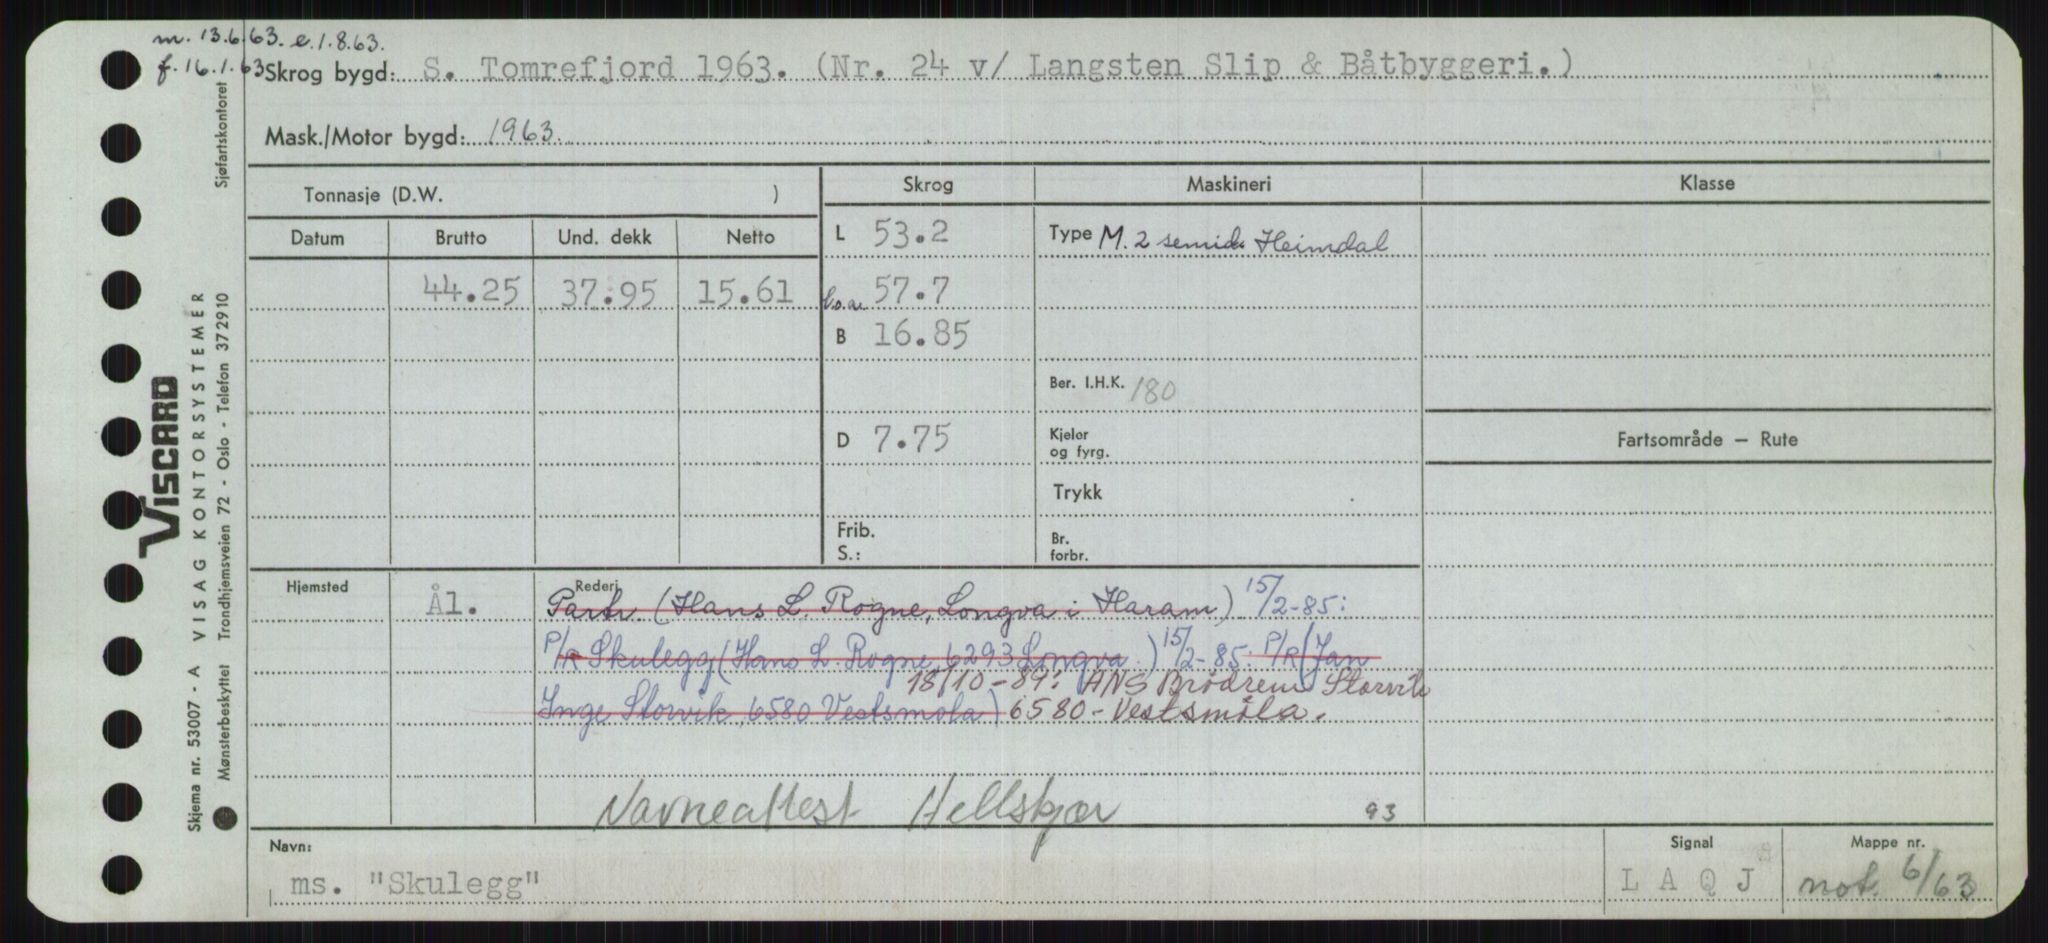 m. 13.6.63. e.1.8.63.
f. 16.1.63
Skrog bygd: S. Tomrefjord 1963. (Nr. 24 v/ Langsten Slip & Båtbyggeri.)
Mask./Motor bygd: 1963.
Tonnasje (D.W. )
Skrog
Maskineri
Klasse
Datum Brutto Und. dekk Netto
L 53.2
Type M. 2 semid. Heimdal
44.25 37.95 15.61
l.o.a. 57.7
B 16.85
Ber. I.H.K. 180
D 7.75
Kjeler
og fyrg.
Fartsområde – Rute
Trykk
Frib.
S.:
Br.
forbr.
Hjemsted Ål. Rederi
Partr. (Hans L. Rogne, Longva i Haram) 15/2-85:
P/R Skulegg (Hans L. Rogne, 6293 Longva.) 15/2-85: P/R (Jan
18/10-89: ANS Brødrene Storvik
Inge Storvik, 6580 Vestsmøla) 6580 - Vestsmøla.
Navneattest Hellskjær 93
Navn: Signal Mappe nr.
ms. "Skulegg" L A Q J not. 6/63
Sjøfartskontoret
VISCARD
VISAG KONTORSYSTEMER
Trondhjemsveien 72 - Oslo - Telefon 372910
Skjema nr. 53007 - A
Mønsterbeskyttet